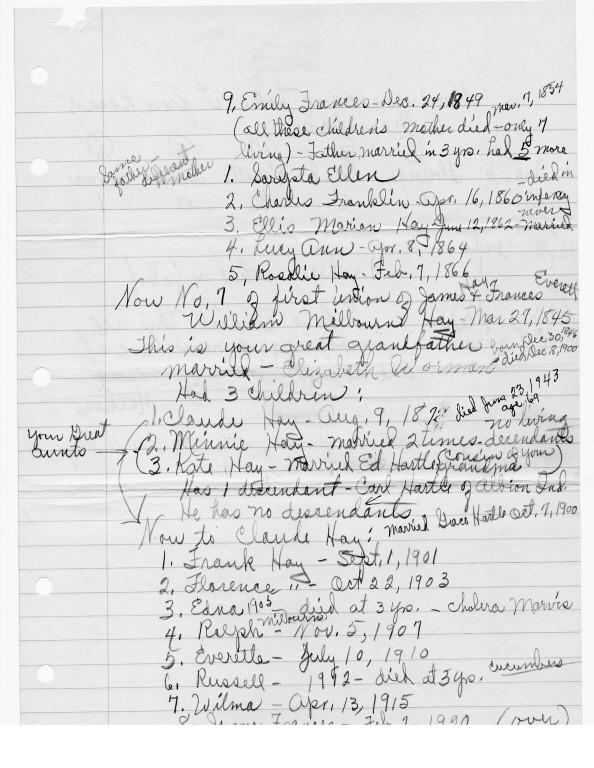 9. Emily Frances - Dec. 24, 1849 Mar. 7, 1854
(all these childrens mother died - only 7
living) - Father married in 3 yrs. had 5 more
Same father - different mother
1. Sarepta Ellen
2. Charles Franklin - Apr. 16, 1860 - died in infancy
3. Ellis Marian Hay - June 12, 1862 - never married
4. Lucy Ann - Apr. 8, 1864
5, Rosalie Hay - Feb. 7, 1866
Now No. 7 of first union of James Hay & Frances Everett
William Milbourne Hay - Mar 27, 1845
This is your great grandfather
married - Elizabeth Worman born Dec 30, 1846 died Dec. 8, 1900
Had 3 children:
1. Claude Hay - Aug. 9, 187 died June 23, 1943 age 69
your Great aunts
2. Minnie Hay - married 2 times - no living decendants
3. Kate Hay - Married Ed Hartle (Cousin of your grandma)
Has 1 descendant - Carl Hartle of Albion Ind.
He has no descendants
Now to Claude Hay: married Grace Hartle Oct. 7, 1900
1. Frank Hay - Sept. 1, 1901
2. Florence " - Oct 22, 1903
3. Edna 1905 - died at 3 yrs. - Cholera Marvis
4. Ralph Milbourne - Nov. 5, 1907
5. Everette - July 10, 1910
6. Russell - 1912 - died at 3 yrs. cucumbers
7. Wilma - Apr. 13, 1915
(over)